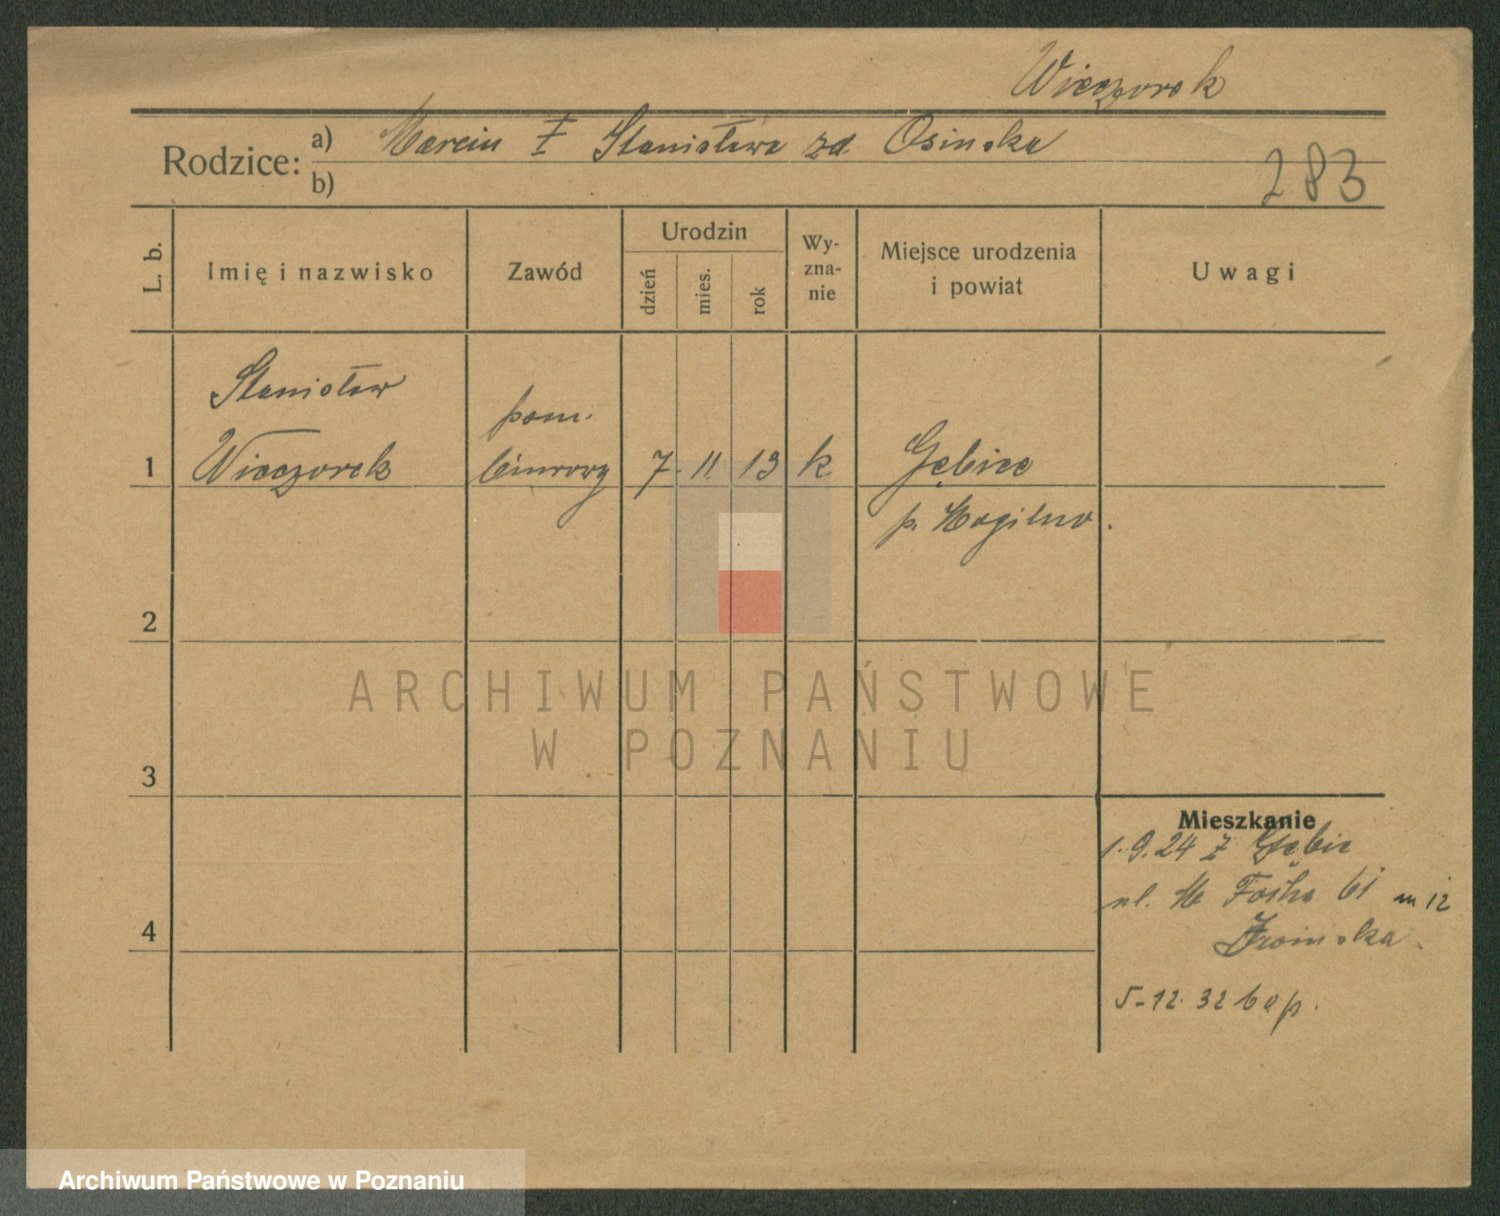 Wieczorek
Rodzice: a) Marcin ‡ Stanisława zd Osinska
b)
283
L. b.
Imię i nazwisko
Zawód
Urodzin
dzień
mies.
rok
Wy-
zna-
nie
Miejsce urodzenia
i powiat
Uwagi
Stanisław
pom.
1 Wieczorek biurowy 7. 11 13 k Gębice
p. Mogilno.
2
ARCHIWUM PAŃSTWOWE
W POZNANIU
3
Mieszkanie
1.9.24 z Gębic
ul. M Focha 61 m 12
4
5-12.32
Archiwum Państwowe w Poznaniu